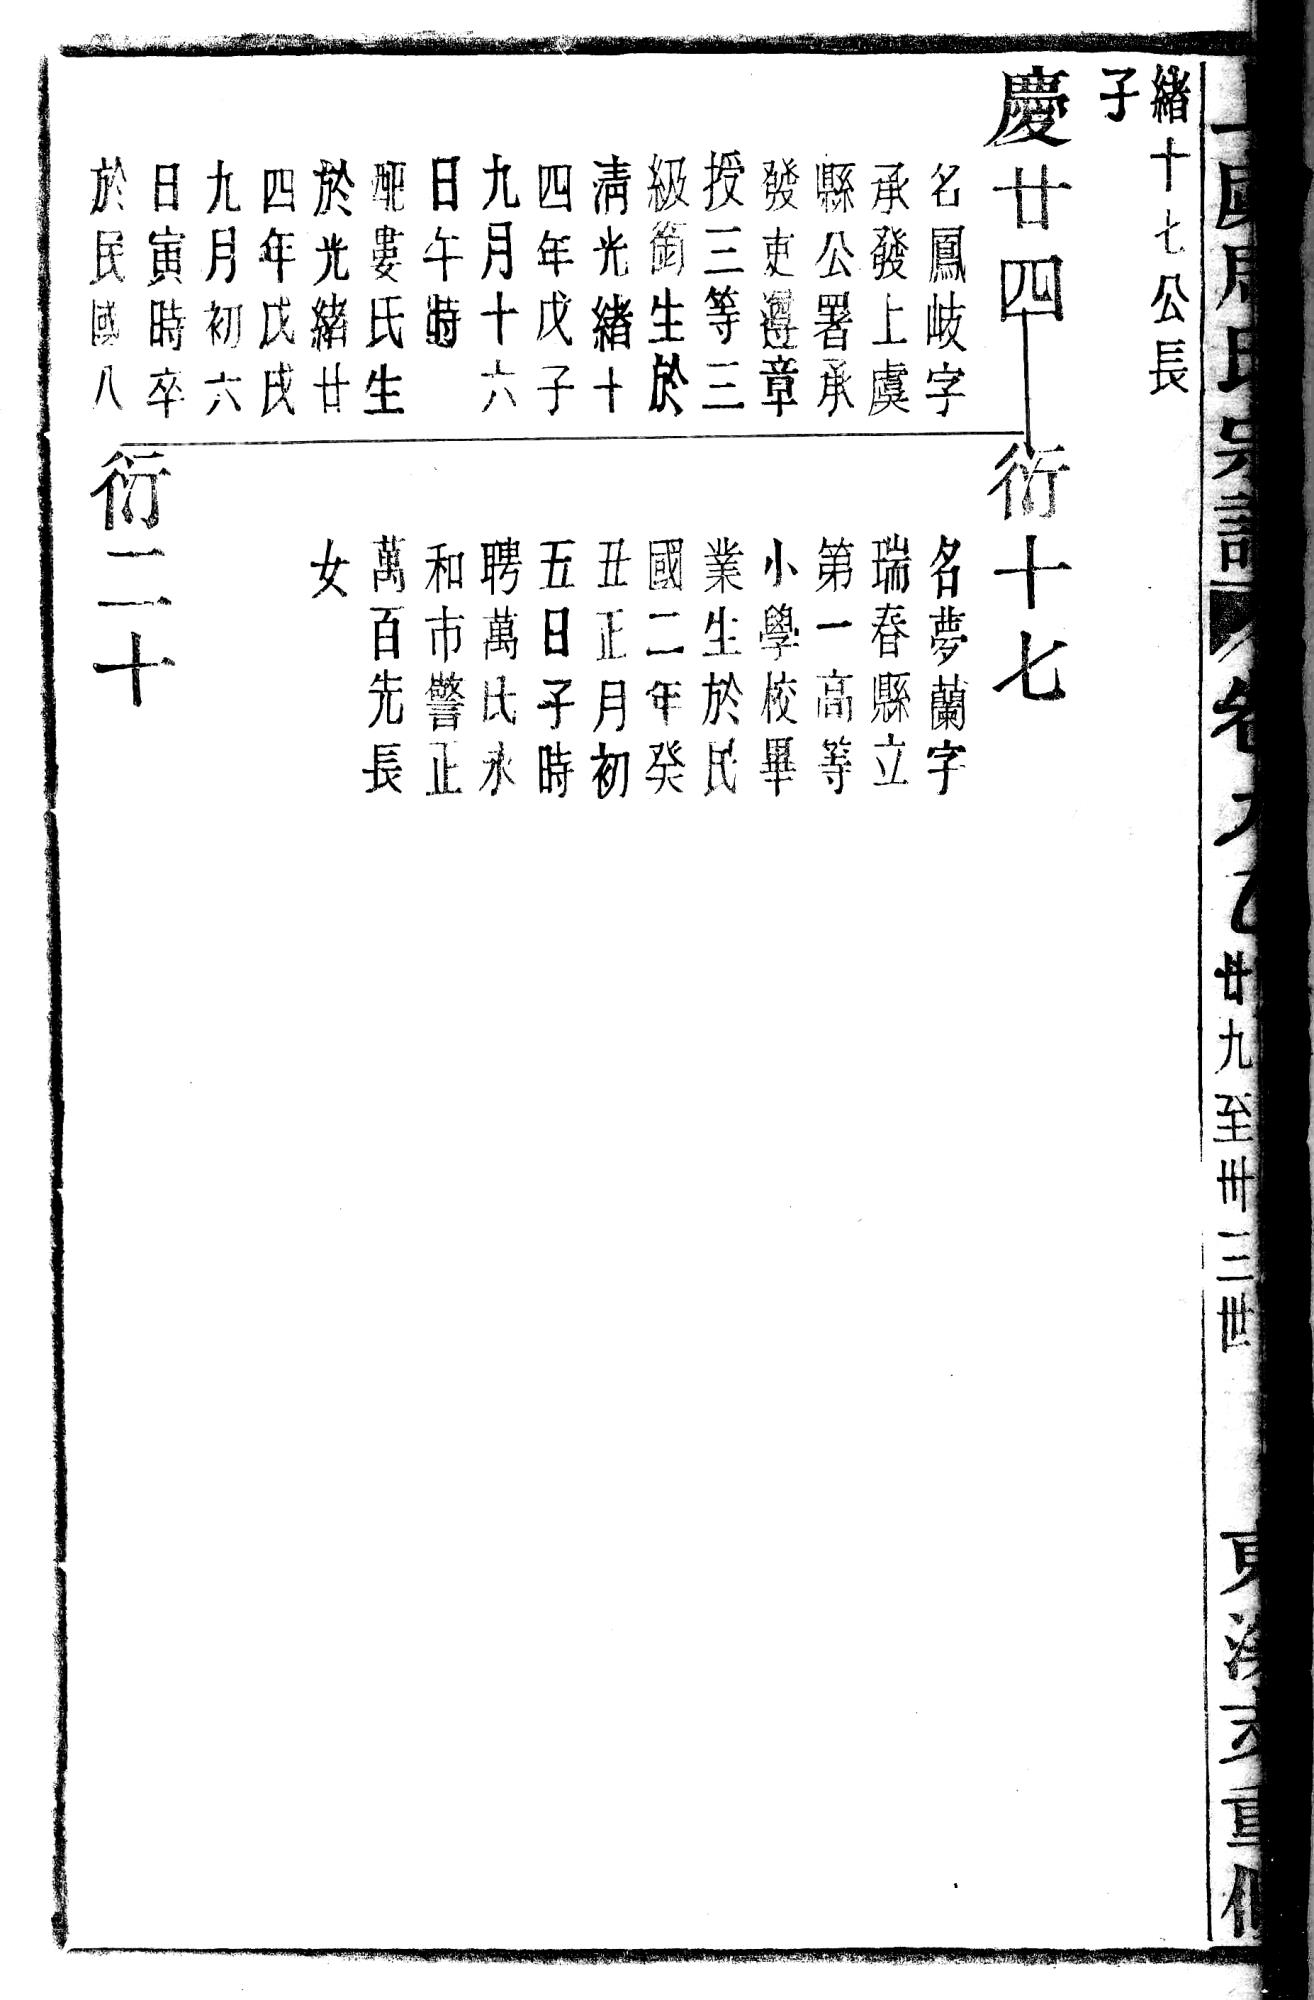 上虞周氏宗譜 卷九乙 廿九至卅三世 東溪支重修
緒十七公長
子
慶廿四
名鳳岐字
承發上虞
縣公署承
發吏遵章
授三等三
級銜生於
清光緒十
四年戊子
九月十六
日午時
配婁氏生
於光緒廿
四年戊戌
九月初六
日寅時卒
於民國八
衍十七
名夢蘭字
瑞春縣立
第一高等
小學校畢
業生於民
國二年癸
丑正月初
五日子時
聘萬氏永
和市警正
萬百先長
女
衍二十